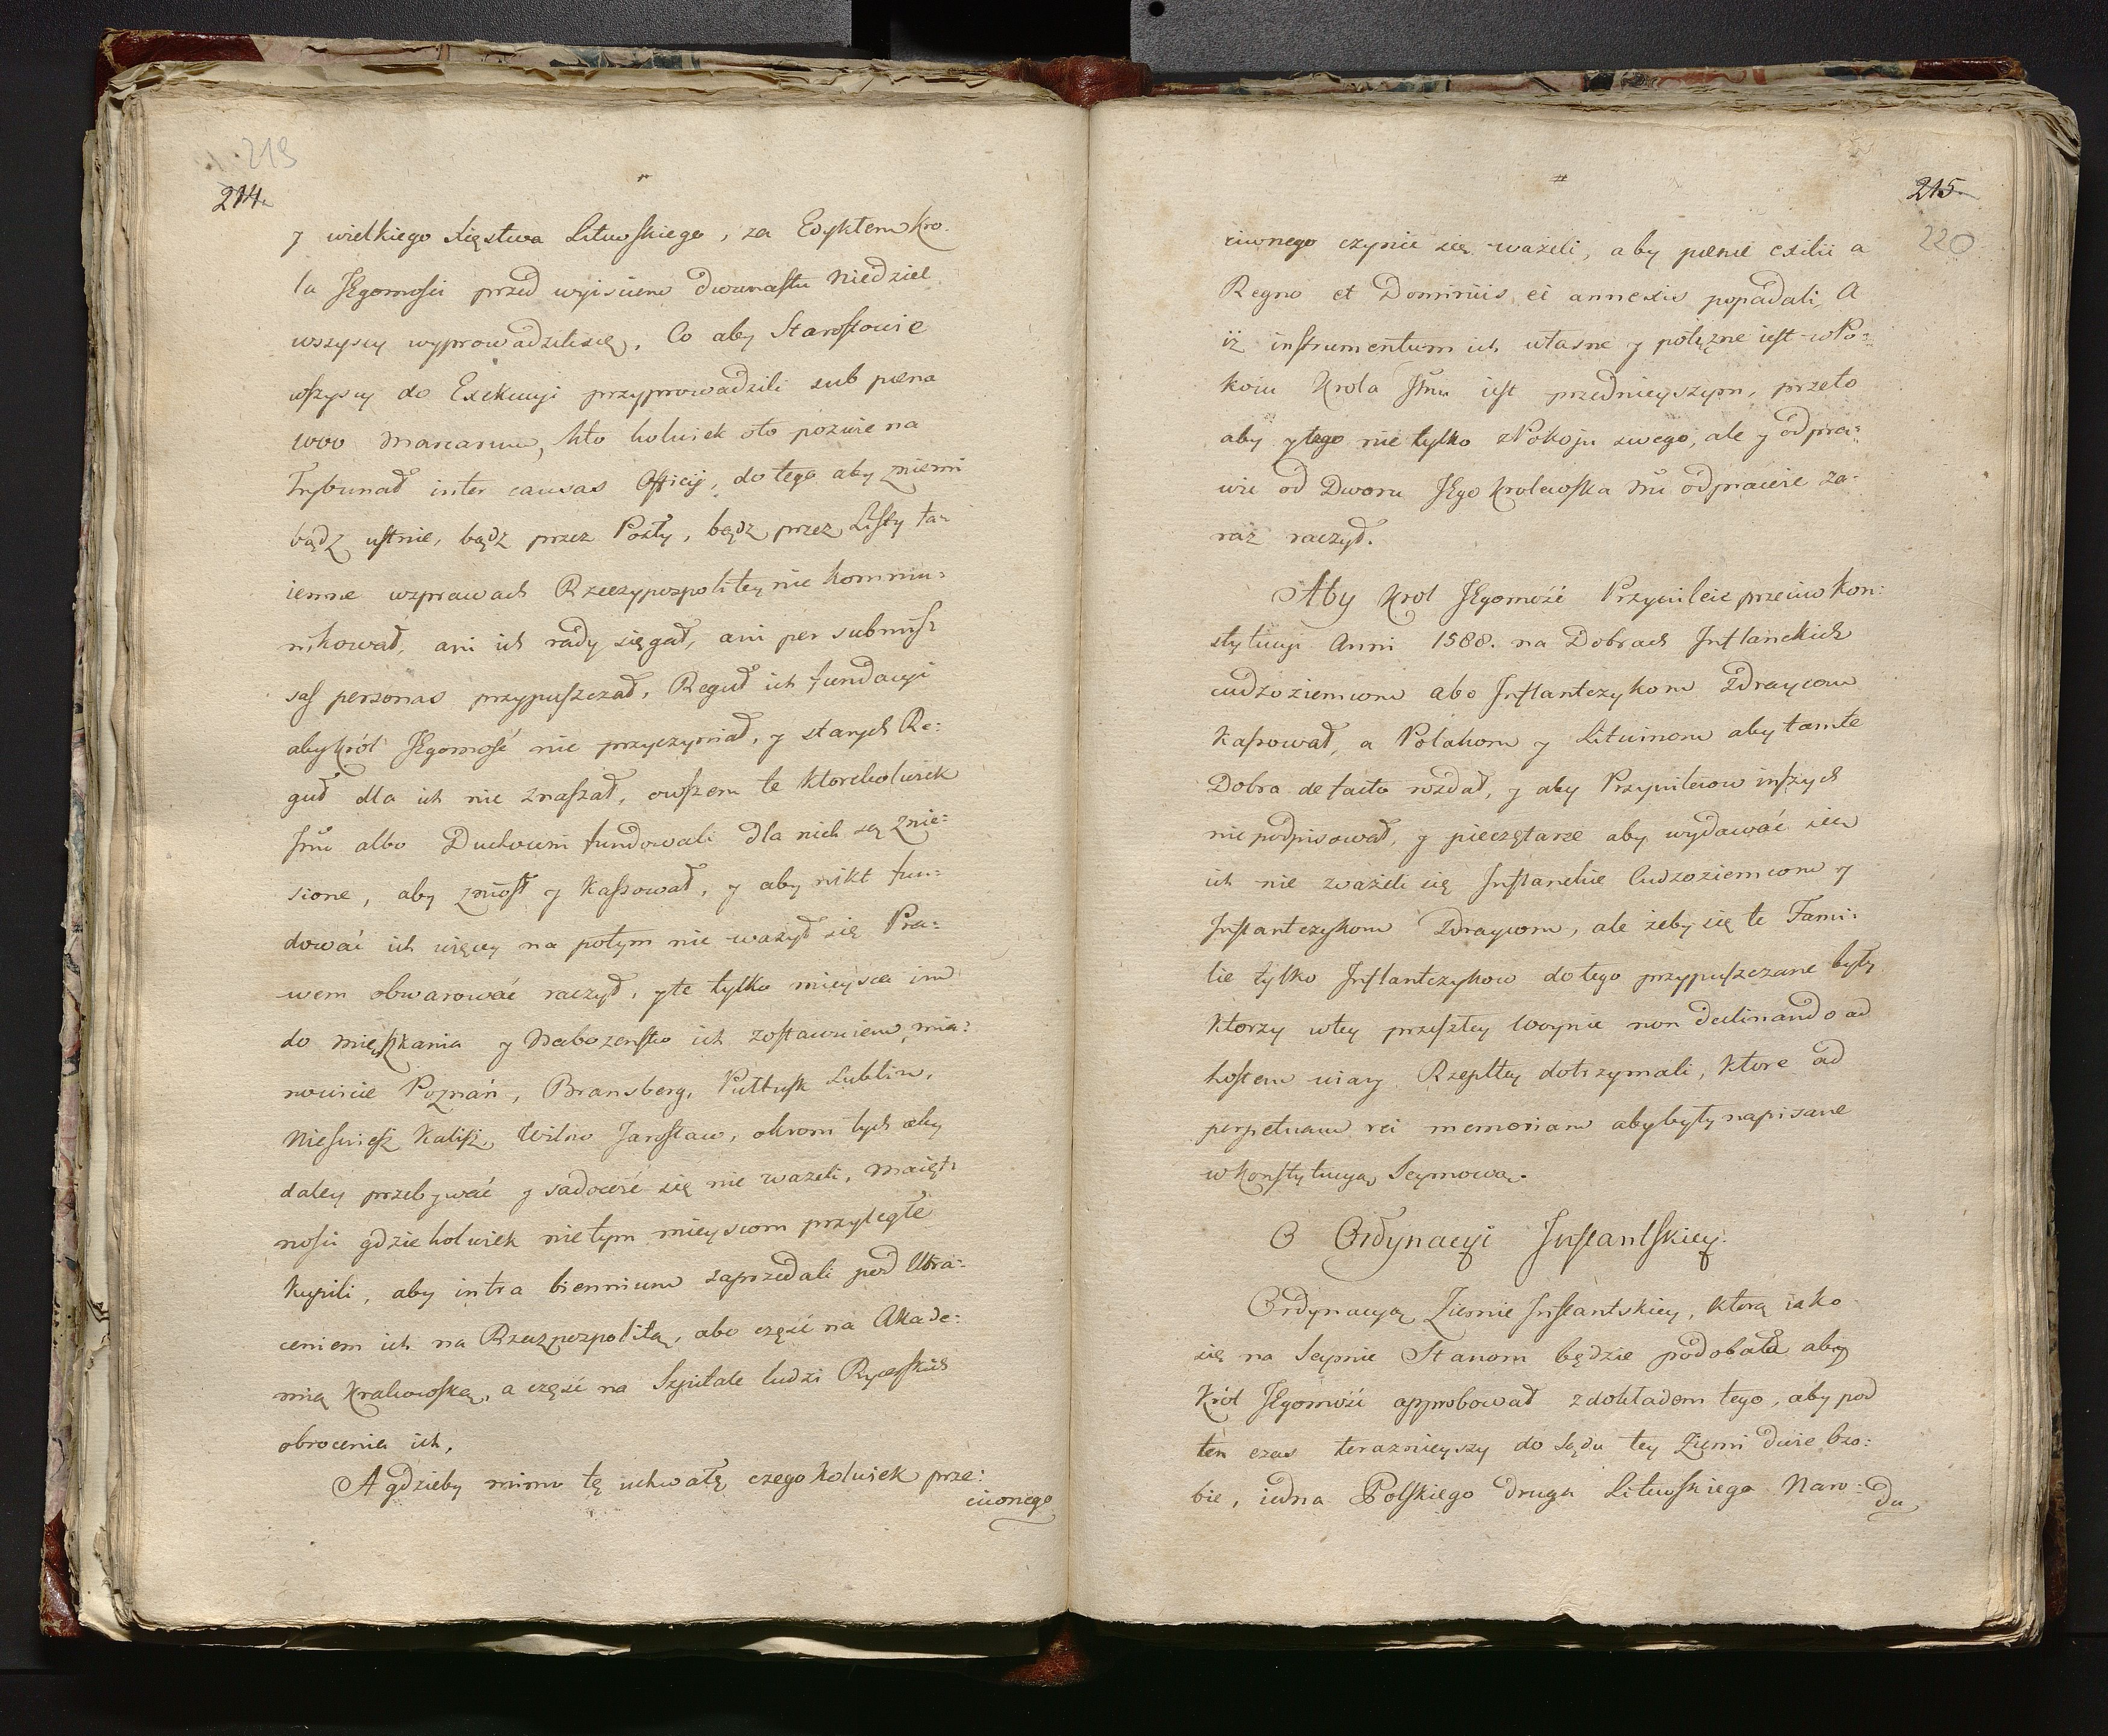 219
214.
y wielkiego xięstwa Litewskiego, za Edyktem Kro-
la JEgomości przed wyisciem dwunastu Niedziel
wszyscy wyprowadzilisię. Co aby Starostowie
wszyscy do Exekucyi przyprowadzili sub pœna
1000 Marcarum, kto kolwiek oto pozwie na
Trybunał inter causas Officij, do tego aby zniemi
bądz ustnie, bądz przez Posły, bądz przez Listy ta-
iemne wsprawach Rzeczypospolitey nie kommu:
nikował, ani ich rady sięgał, ani per submis:
sas personas przypuszczał, Reguł ich fundacyi
aby król JEgomość nie przyczyniał, y starych Re:
guł dla ich nie znaszał, owszem te ktorekolwiek
Jmć albo Duchowni fundowali dla nich są znie:
sione, aby zniosł y kassował, y aby nikt fun:
dować ich więcey na potym nie ważył się Pra:
wem obwarować raczył, yte tylko mieysca im
do mięszkania y Nabożeństwo ich zostawuiem, mia:
nowicie Poznań, Bransberg, Pułtusk Lublin,
Nieświesz Kalisz, Wilno Jarosław, okrom tych aby
daley przebywać y sadowić się nie ważeli, Maięt:
nosci gdzie kolwiek nie tym mieyscom przyległe
Kupili, aby intra biennium zaprzedali pod Utra:
ceniem ich na Rzeczpospolitą, abo część na Akade:
mią Krakowską, a część na Szpitale ludzi Rycerskich
obrocenia ich.
A gdzieby mimo tę uchwałę czego kolwiek prze:
ciwnego
215
220
ciwnego czynić się ważeli, aby pœne exilii a
Regno et Dominiis ei annexis popadali, A
iż instrumentum ich własne y potężne iest w Po:
koiu Krola Jmci iest przednieyszym, przeto
aby y tego nie tylko z Pokoju swego, ale y odpra:
wie od Dworu JEgo Krolewska Mć odprawić za-
raz raczył.
Aby Krol JEgomość Przywileie przeciw Kon:
stytucyi Anni 1588. na Dobrach Inflanckich
cudzoziemcom abo Inflantczykom Zdraycom
Kassował, a Polakom y Litwinom aby tamte
Dobra de facto rozdał, y aby Przywileiow inszych
nie podpisował, y pieczętarze aby wydawać iem
ich nie zważeli się Inflanckie Cudzoziemcom y
Inflantczykom Zdraycom, ale żeby się te Fami:
lie tylko Inflantczykow do tego przypuszczane były
Ktorzy wtey przeszłey Woynie non declinando ad
hostem wiary Rzeplitey dotrzymali, Ktore ad
perpetuam rei memoriam aby były napisane
w Konstytucyą Seymową.
O Ordynacyi Inflantskiey.
Ordynacyą Ziemie Inflantskiey, ktorą iako
się na Seymie Stanom będzie podobała aby
Król JEgomość approbował z dokładem tego, aby pod
ten czas teraznieyszy do Sądu tey Ziemi dwie Oso:
bie, iedna Polskiego druga Litewskiego Naro:
du